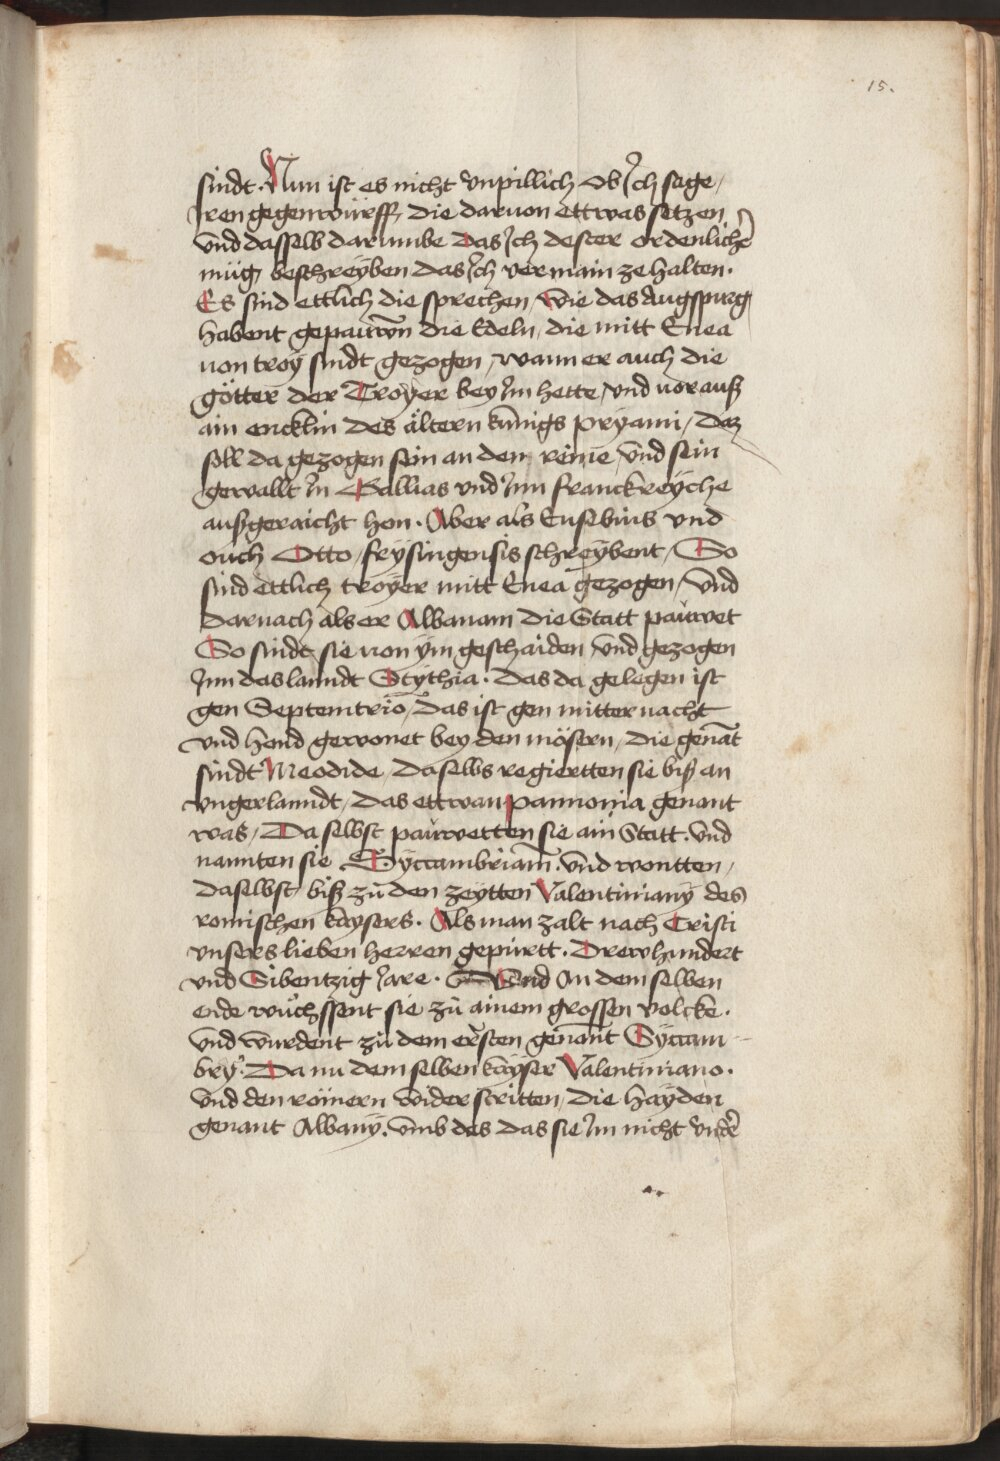 15.
sindt. Nun ist es nicht vnpillich ob Ich sage,
Iren gegenwürff, die daruon ettwas setzen
vnd dasselb darumbe das Ich dester ordenlicher̄
müg beschreyben das Ich vermain ze halten.
Es sind ettlich die sprechen, wie das Augspurg
habent gepauwn̄ die Edeln, die mitt Enea
von troy sindt gezogen, wann er auch die
götter der Troyer bey Im hette, vnd vorauß
ain encklin des ältern kunigs pryami, daz
soll da gezogen sein an den reine, vnd sein
gewallt In Gallias vnd Inn franckreyche
außgeraicht hon. Aber als Eusebius vnd
ouch Otto, frysingensis schreybent, So
sind ettlich troyer mitt Enea gezogen, vnd
darnach als er Albanam die Statt pauwet
So sindt sie von ym geschaiden, vnd gezogen
Inn das lanndt Scythia. das da gelegen ist
gen Septemtrio, das ist gen mitternacht
vnd hend gewonet bey den mösern, die genāt
sindt Meodide, daselbs regiertten sie biß an
vngerlanndt, das ettwan pannonia genant
was, Da selbst pauwetten sie ain Statt. vnd
nannten sie Syccambriam̄. vnd wontten,
daselbst, biß zů den zeytten Valentiniany des
romischen kaysers. Als man zalt nach Cristi
vnsers lieben herren gepurtt. Drewhundert
vnd Sibentzig Jare. Vnd An dem selben
ende wůchssent sie zů ainem grossen volcke.
vnd wurdent zů dem ersten genant Syccam
bry. Da nu dem selben kayser Valentiniano.
vnd den römern widerstritten, die hayden
genant Albany. vmb des das sie Im nicht vnder̄